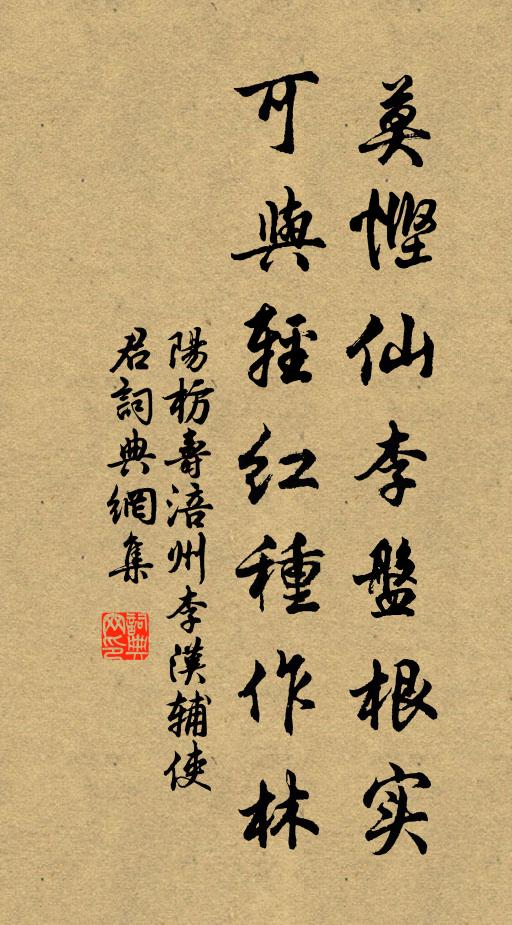 莫慳仙李盤根实
可與輕红種作林
陽枋壽涪州李漢辅使
君詞典網集
詞典網印